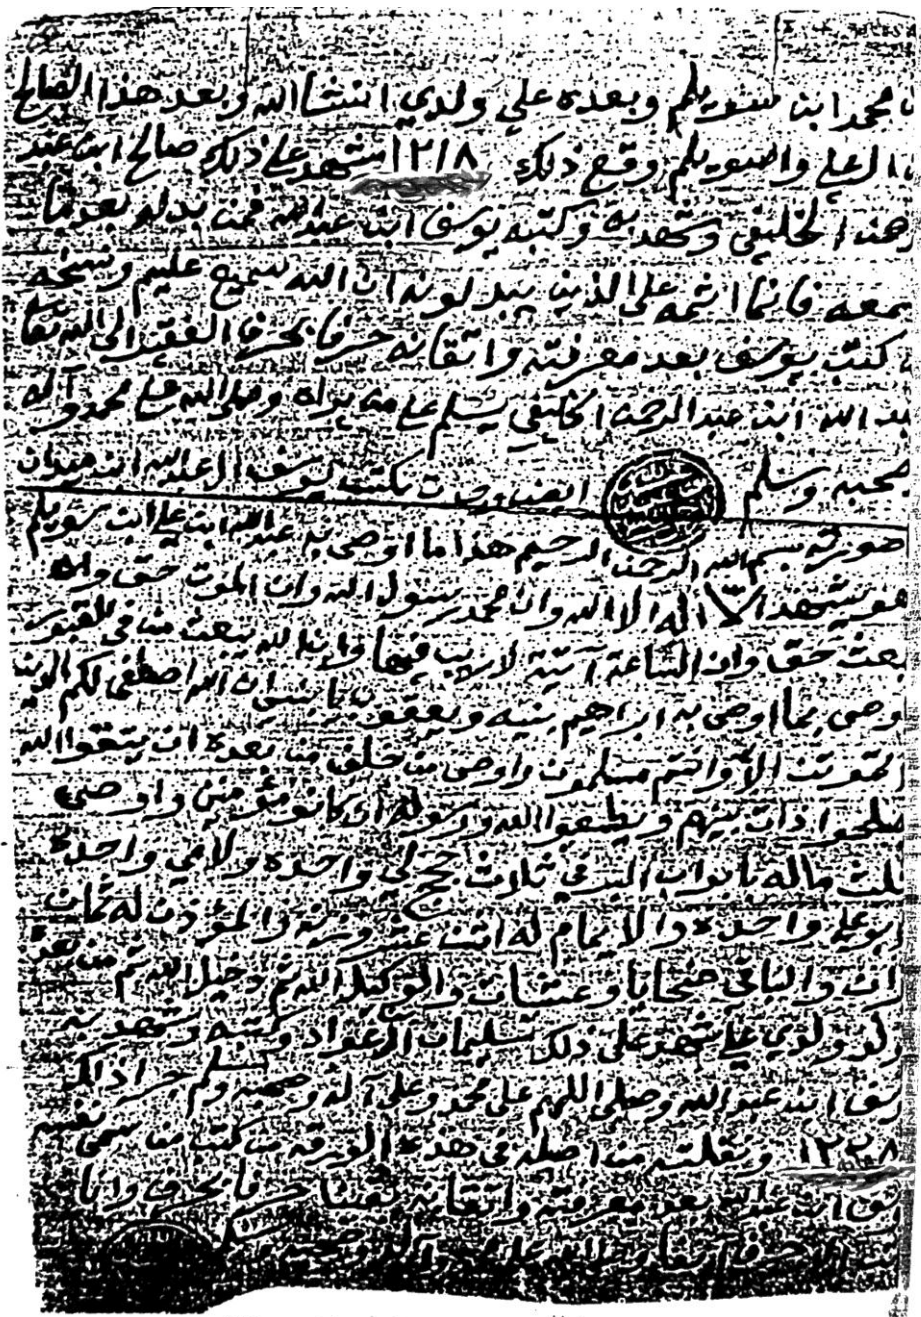 محمد ابن سويلم وبعده علي ولدي انشا الله وبعد هذا الصالح
ال علي وال سويلم وقع ذلك ١٢١٨ شهد على ذلك صالح ابن عبد
الخليفي وشهد به وكتبه يوسف ابن عبد الله فمن بدله بعد ما
سمعه فانما اثمه على الذين يبدلونه ان الله سميع عليم ونسخه
كتب يوسف بعد معرفته واتقانه حرفا بحرف الفقير الى الله تعا
عبد الله ابن عبد الرحمن الخليفي يسلم على من يراه وصلى الله على محمد وآله
صحبه وسلم ايضا وجدت بكتب يوسف ال عبد الله ابن
صورته بسم الله الرحمن الرحيم هذا ما اوصى به عبد الله ابن علي ابن سويلم
هو يشهد الا اله الا الله وان محمد رسول الله وان الموت حق وان
بعث حق وان الساعة آتية لا ريب فيها وان الله يبعث من في القبور
وصى بما اوصى به ابراهيم بنيه ويعقوب يا بني ان الله اصطفى لكم الدين
تموتن الا وانتم مسلمون واوصى من خلف من بعده ان يتقوا الله
يصلحوا ذات بينهم ويطيعوا الله ورسوله ان كانو مؤمنين واوصى
ثلث ماله بابواب البر في ثلاث حجج لي واحده ولامي واحدة
ابوي علي واحدة والامام له اثنت عشر وزنه والمؤذن له ثمان
وزان والباقي ضحايا وعشيات والوكيل الله ثم دخيل الله ثم من بعده
ولدي علي شهد على ذلك سليمان ال عواد وكتبه وشهد به
يوسف ابن عبد الله وصلى اللهم على محمد وعلى آله وصحبه وسلم
١٢٢٨ ونقلته من اصله في هذه الورقه من كتب من سمى نفسه
يوسف ابن عبد الله بعد معرفته واتقانه يقينا حرفا بحرف وانا
وآله وصحبه وسلم